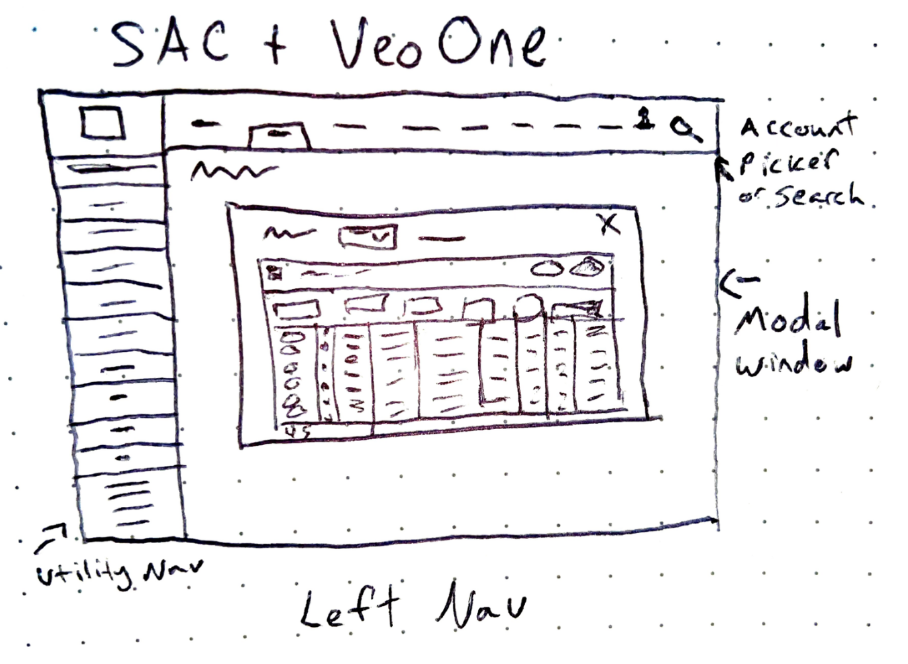 SAC + VeoOne
Account
Picker
or Search
Modal
window
45
utility Nav
Left Nav